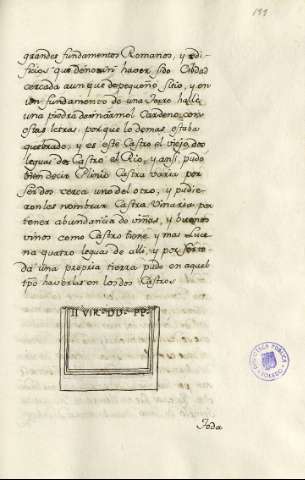 199
grandes fundamentos Romanos, y edi-
ficios que denotan haver sido Ciudad
cercada aunque de pequeño sitio, y en
un fundamento de una Torre halle
una piedra de marmol Cardeno con
estas letras, porque lo demas estaba
quebrado; y es este Castro el viejo dos
leguas de Castro el Rio, y ansi pudo
bien decir Plinio Castra varia por
ser dos cerca uno del otro, y pudie-
ron los nombrar Castra Vinaria por
tener abundancia de viños, y buenos
vinos como Castro tiene y mas Luce-
na quatro leguas de alli, y por ser to-
da una propria tierra pudo en aquel
tpõ haverlas en los dos Castros
II VIR· DD· PP·
BIBLIOTECA PUBLICA
TOLEDO
Toda